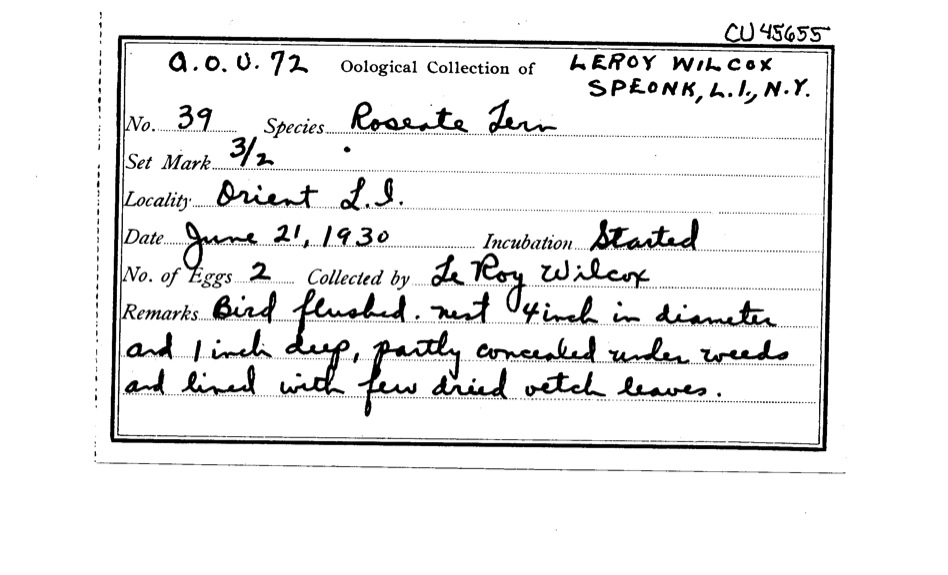 CU 45655
A.O.U. 72 Oological Collection of LEROY WILCOX
SPEONK, L.I., N.Y.
No. 39 Species Roseate Tern
Set Mark 3/2
Locality Orient L.I.
Date June 21, 1930 Incubation Started
No. of Eggs 2 Collected by Le Roy Wilcox
Remarks Bird flushed. nest 4 inch in diameter
and 1 inch deep, partly concealed under weeds
and lined with few dried vetch leaves.